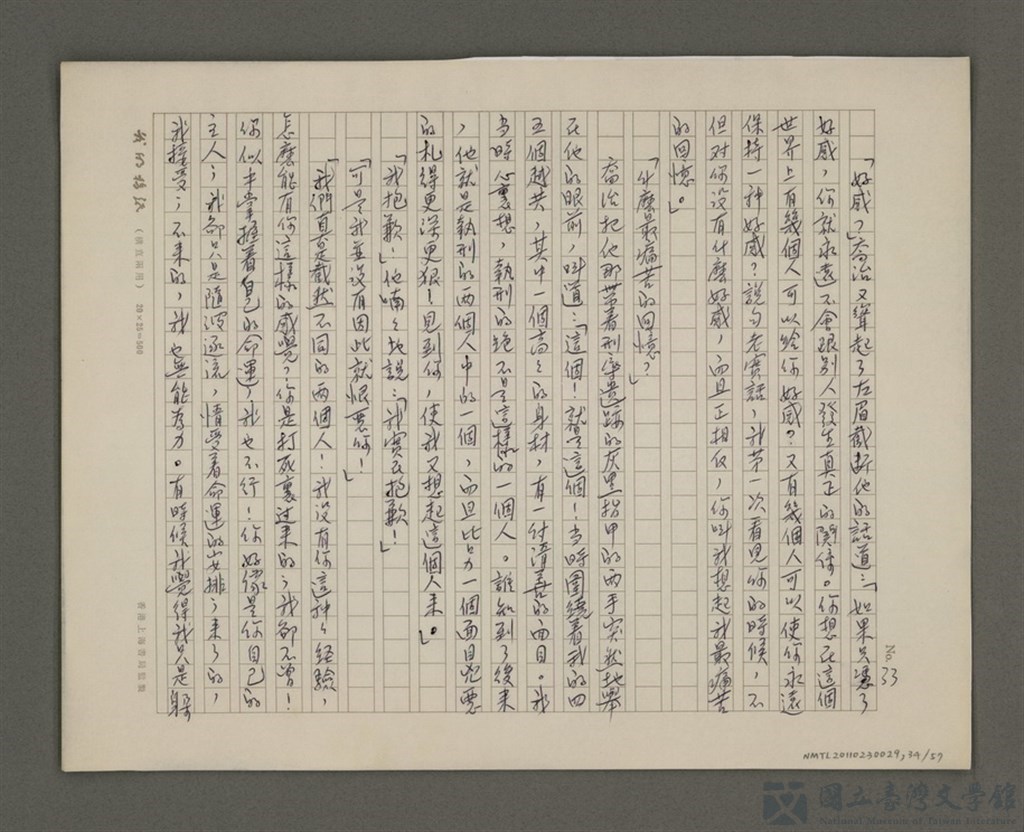 No. 33
「好感？」喬治又聳起了左眉截斷他的話道：「如果只憑了
好感，你就永遠不會跟別人發生真正的關係。你想在這個
世界上有幾個人可以給你好感？又有幾個人可以使你永遠
保持一種好感？說句老實話，我第一次看見你的時候，不
但對你沒有什麼好感，而且正相反，你叫我想起我最痛苦
的回憶。」
「什麼最痛苦的回憶？」
喬治把他那帶着刑牢遺跡的灰黑指甲的兩手突然地舉
在他的眼前，叫道：「這個！就是這個！當時圍繞着我的四
五個越共，其中一個高々的身材，有一付清善的面目。我
當時心裏想，執刑的絕不是這樣的一個人。誰知到了後來
，他就是執刑的兩個人中的一個，而且比另一個面目兇惡
的札得更深更狠！見到你，使我又想起這個人來。」
「我抱歉！」他喃々地說：「我實在抱歉！」
「可是我並沒有因此就恨惡你！」
「我們真是截然不同的兩個人！我沒有你這種々經驗，
怎麼能有你這樣的感覺？你是打死裏過來的；我卻不曾！
你似乎掌握着自己的命運，我也不行！你好像是你自己的
主人；我卻只是隨波逐流，情受着命運的安排；來了的，
我接受；不來的，我也無能為力。有時候我覺得我只是躲
我的稿紙
（橫直兩用） 20×25=500
香港上海書局監製
NMTL20110230029,34/57
國立臺灣文學館
National Museum of Taiwan Literature